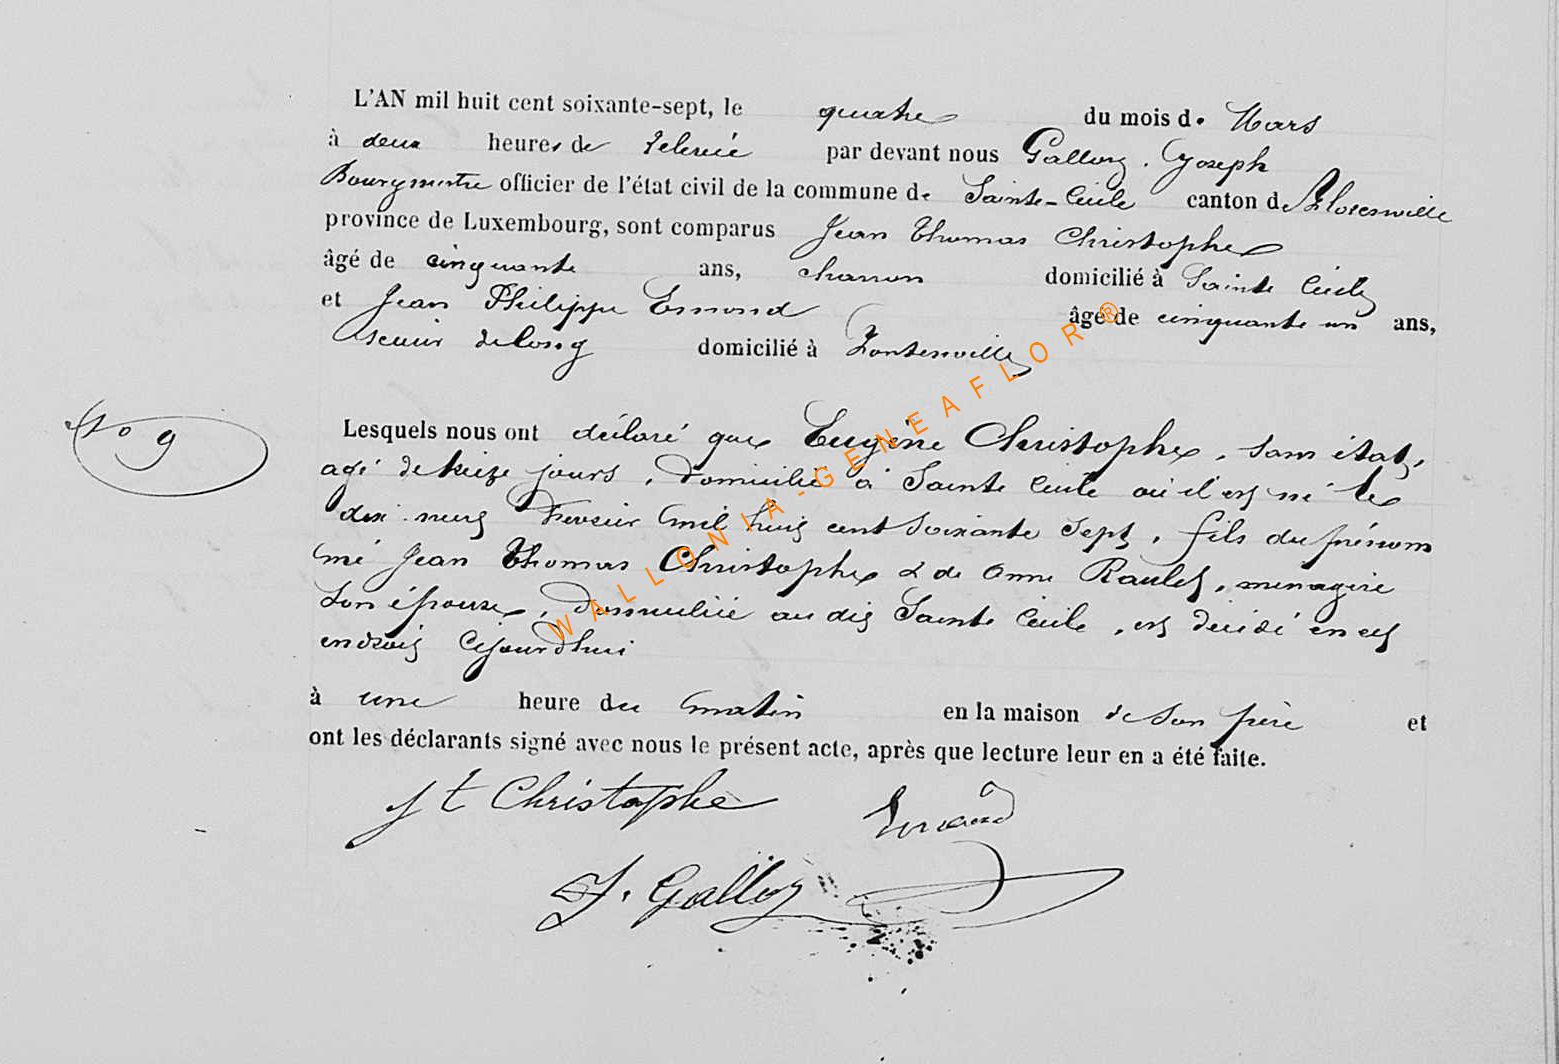 L'AN mil huit cent soixante-sept, le quatre du mois de Mars
à deux heures de relevée par devant nous Galloy Joseph
Bourgmestre officier de l'état civil de la commune de Sainte-Cécile canton de Florenville
province de Luxembourg, sont comparus Jean Thomas Christophe
âgé de cinquante ans, charron domicilié à Sainte Cécile
et Jean Philippe Esmond âgé de cinquante un ans,
scieur de long domicilié à Fontenoille
No 9
Lesquels nous ont déclaré que Eugène Christophe, sans état,
agé de treize jours, domicilié à Sainte Cécile où il est né le
dix neuf Fevrier mil huit cent soixante sept, fils du prénom
mé Jean Thomas Christophe & de Anne Raulet, menagère
son épouse, domiciliée au dit Sainte Cécile, est décédé en cet
endroit cejourd'hui
à une heure du matin en la maison de son père et
ont les déclarants signé avec nous le présent acte, après que lecture leur en a été faite.
J t Christophe
J. Galloy
WALLONIA-GENEAFLOR®